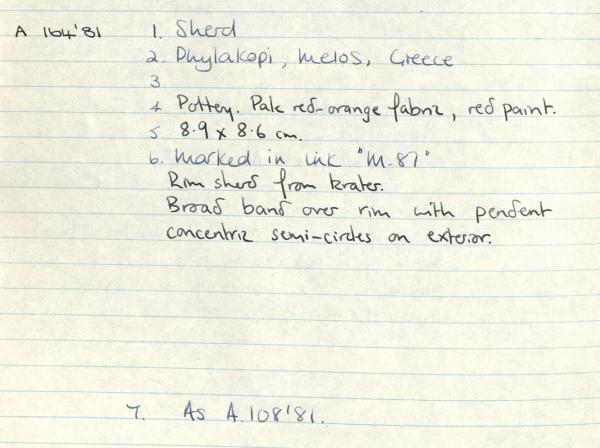 A 164'81 1. Sherd
2. Phylakopi, Melos, Greece
3
4 Pottery. Pale red-orange fabric, red paint.
5 8.9 x 8.6 cm.
6. Marked in ink "M.87"
Rim sherd from krater.
Broad band over rim with pendent
concentric semi-circles on exterior.
7. As A.108'81.